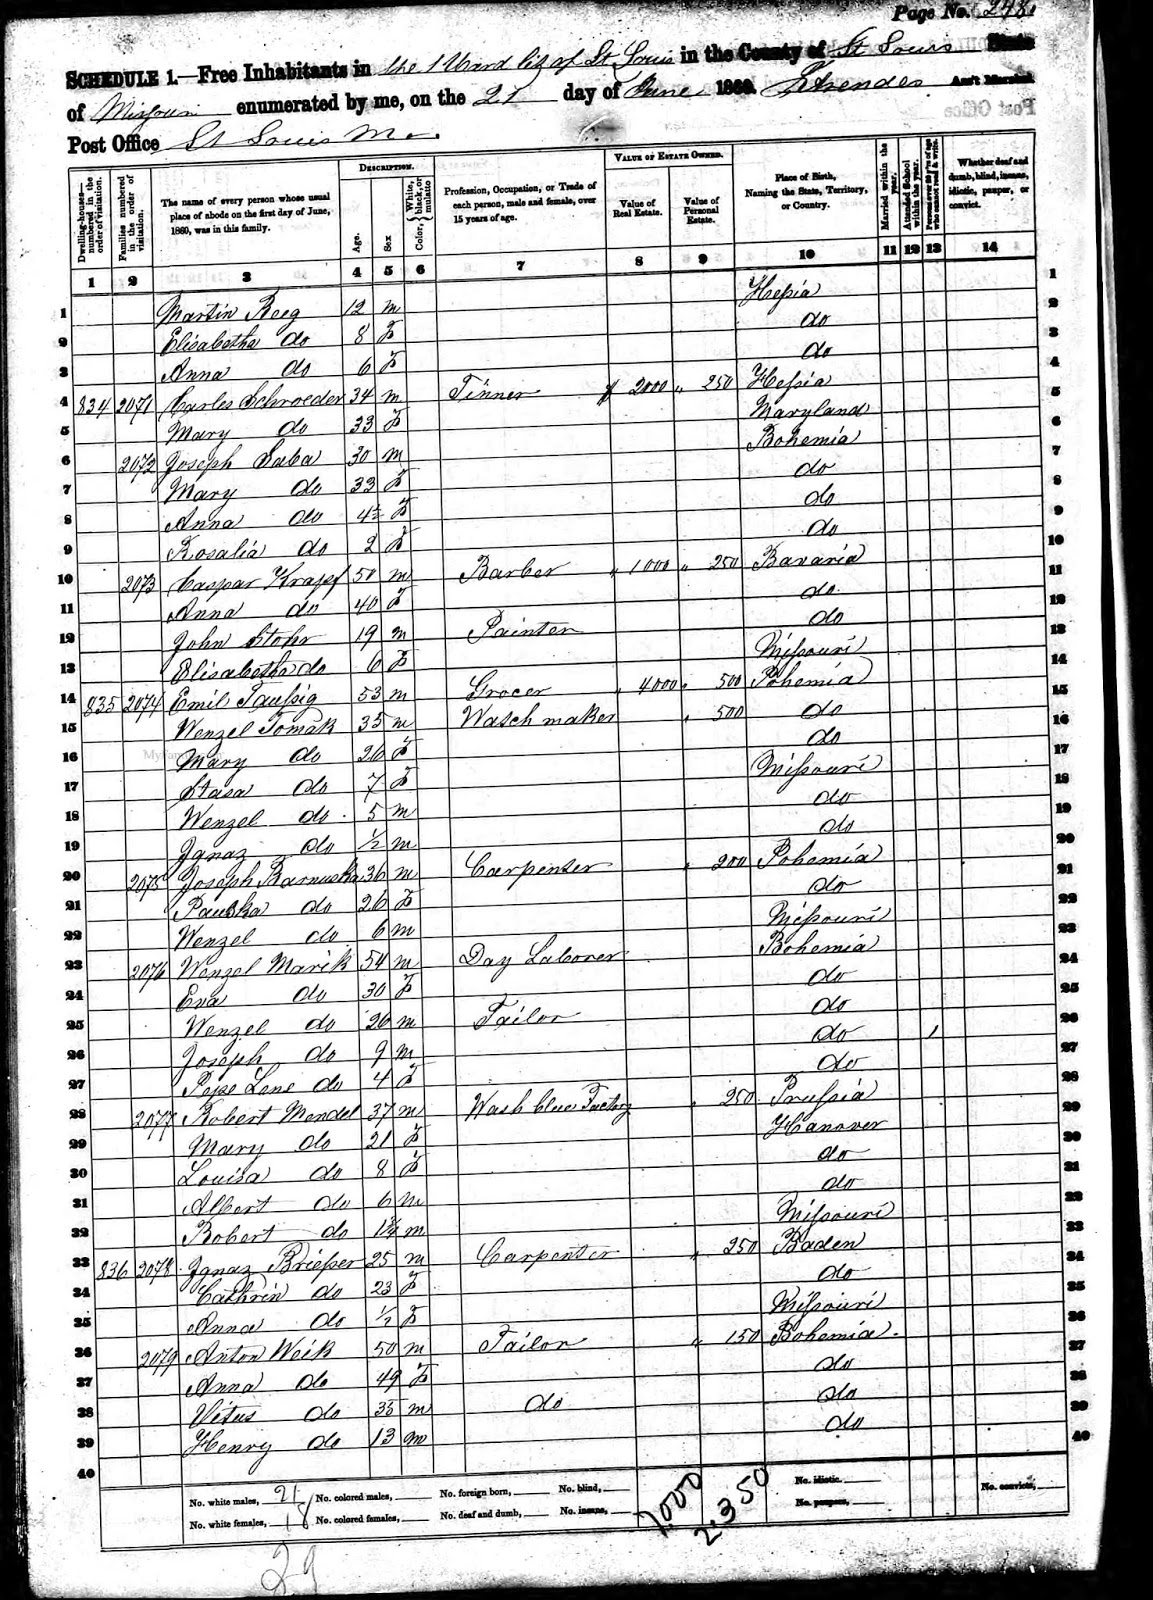 Page No. 243
SCHEDULE 1.—Free Inhabitants in the 1 Ward City of St Louis in the County of St Louis State
of Missouri enumerated by me, on the 27 day of June 1860. Ass't Marshal
Post Office St Louis Mo.
Dwelling-houses—numbered in the order of visitation.
Families numbered in the order of visitation.
The name of every person whose usual place of abode on the first day of June, 1860, was in this family.
DESCRIPTION.
Age.
Sex
Color, White, black, or mulatto
Profession, Occupation, or Trade of each person, male and female, over 15 years of age.
VALUE OF ESTATE OWNED.
Value of Real Estate.
Value of Personal Estate.
Place of Birth, Naming the State, Territory, or Country.
Married within the year.
Attended School within the year.
Persons over 20 y'rs of age who cannot read & write.
Whether deaf and dumb, blind, insane, idiotic, pauper, or convict.
1 2 3 4 5 6 7 8 9 10 11 12 13 14
1 Martin Reeg 12 m Heßia 1
2 Elisabetha do 8 F do 2
3 Anna do 6 F do 3
4 834 2071 Carles Schroeder 34 m Tinner $ 2000 " 250 Heßia 4
5 Mary do 33 F Maryland 5
6 2072 Joseph Saba 30 m Bohemia 6
7 Mary do 33 F do 7
8 Anna do 4½ F do 8
9 Rosalia do 2 F do 9
10 2073 Caspar Krapf 50 m Barber " 1000 " 250 Bavaria 10
11 Anna do 40 F do 11
12 John Stohr 19 m Painter do 12
13 Elisabetha do 6 F Mißouri 13
14 835 2074 Emil Taußig 53 m Grocer " 4000 " 500 Bohemia 14
15 Wenzel Tomak 35 m Wasch maker " 500 do 15
16 Mary do 26 F do 16
17 Stasa do 7 F Mißouri 17
18 Wenzel do 5 m do 18
19 Jgnaz do ½ m do 19
20 2075 Joseph Barnuska 36 m Carpenter " 200 Bohemia 20
21 Pauska do 26 F do 21
22 Wenzel do 6 m Mißouri 22
23 2076 Wenzel Marik 54 m Day Laborer Bohemia 23
24 Eva do 30 F do 24
25 Wenzel do 26 m Tailor do 25
26 Joseph do 9 m do / 26
27 Pepe Lene do 4 F do 27
28 2077 Robert Mendel 37 m Wash blue Factory " 250 Prußia 28
29 Mary do 21 F Hanover 29
30 Louisa do 8 F do 30
31 Albert do 6 m do 31
32 Robert do m Mißouri 32
33 836 2078 Jgnaz Brießer 25 m Carpenter " 250 Baden 33
34 Cathrin do 23 F do 34
35 Anna do ½ F Mißouri 35
36 2079 Anton Weik 50 m Tailor " 150 Bohemia 36
37 Anna do 49 F do 37
38 Vitus do 33 m do do 38
39 Henry do 13 m do 39
40 40
No. white males, 21 No. colored males, No. foreign born, No. blind, 7,000 2,350 No. idiotic. No. convicts,
No. white females, 18 No. colored females, No. deaf and dumb, No. insane, No. paupers,
39